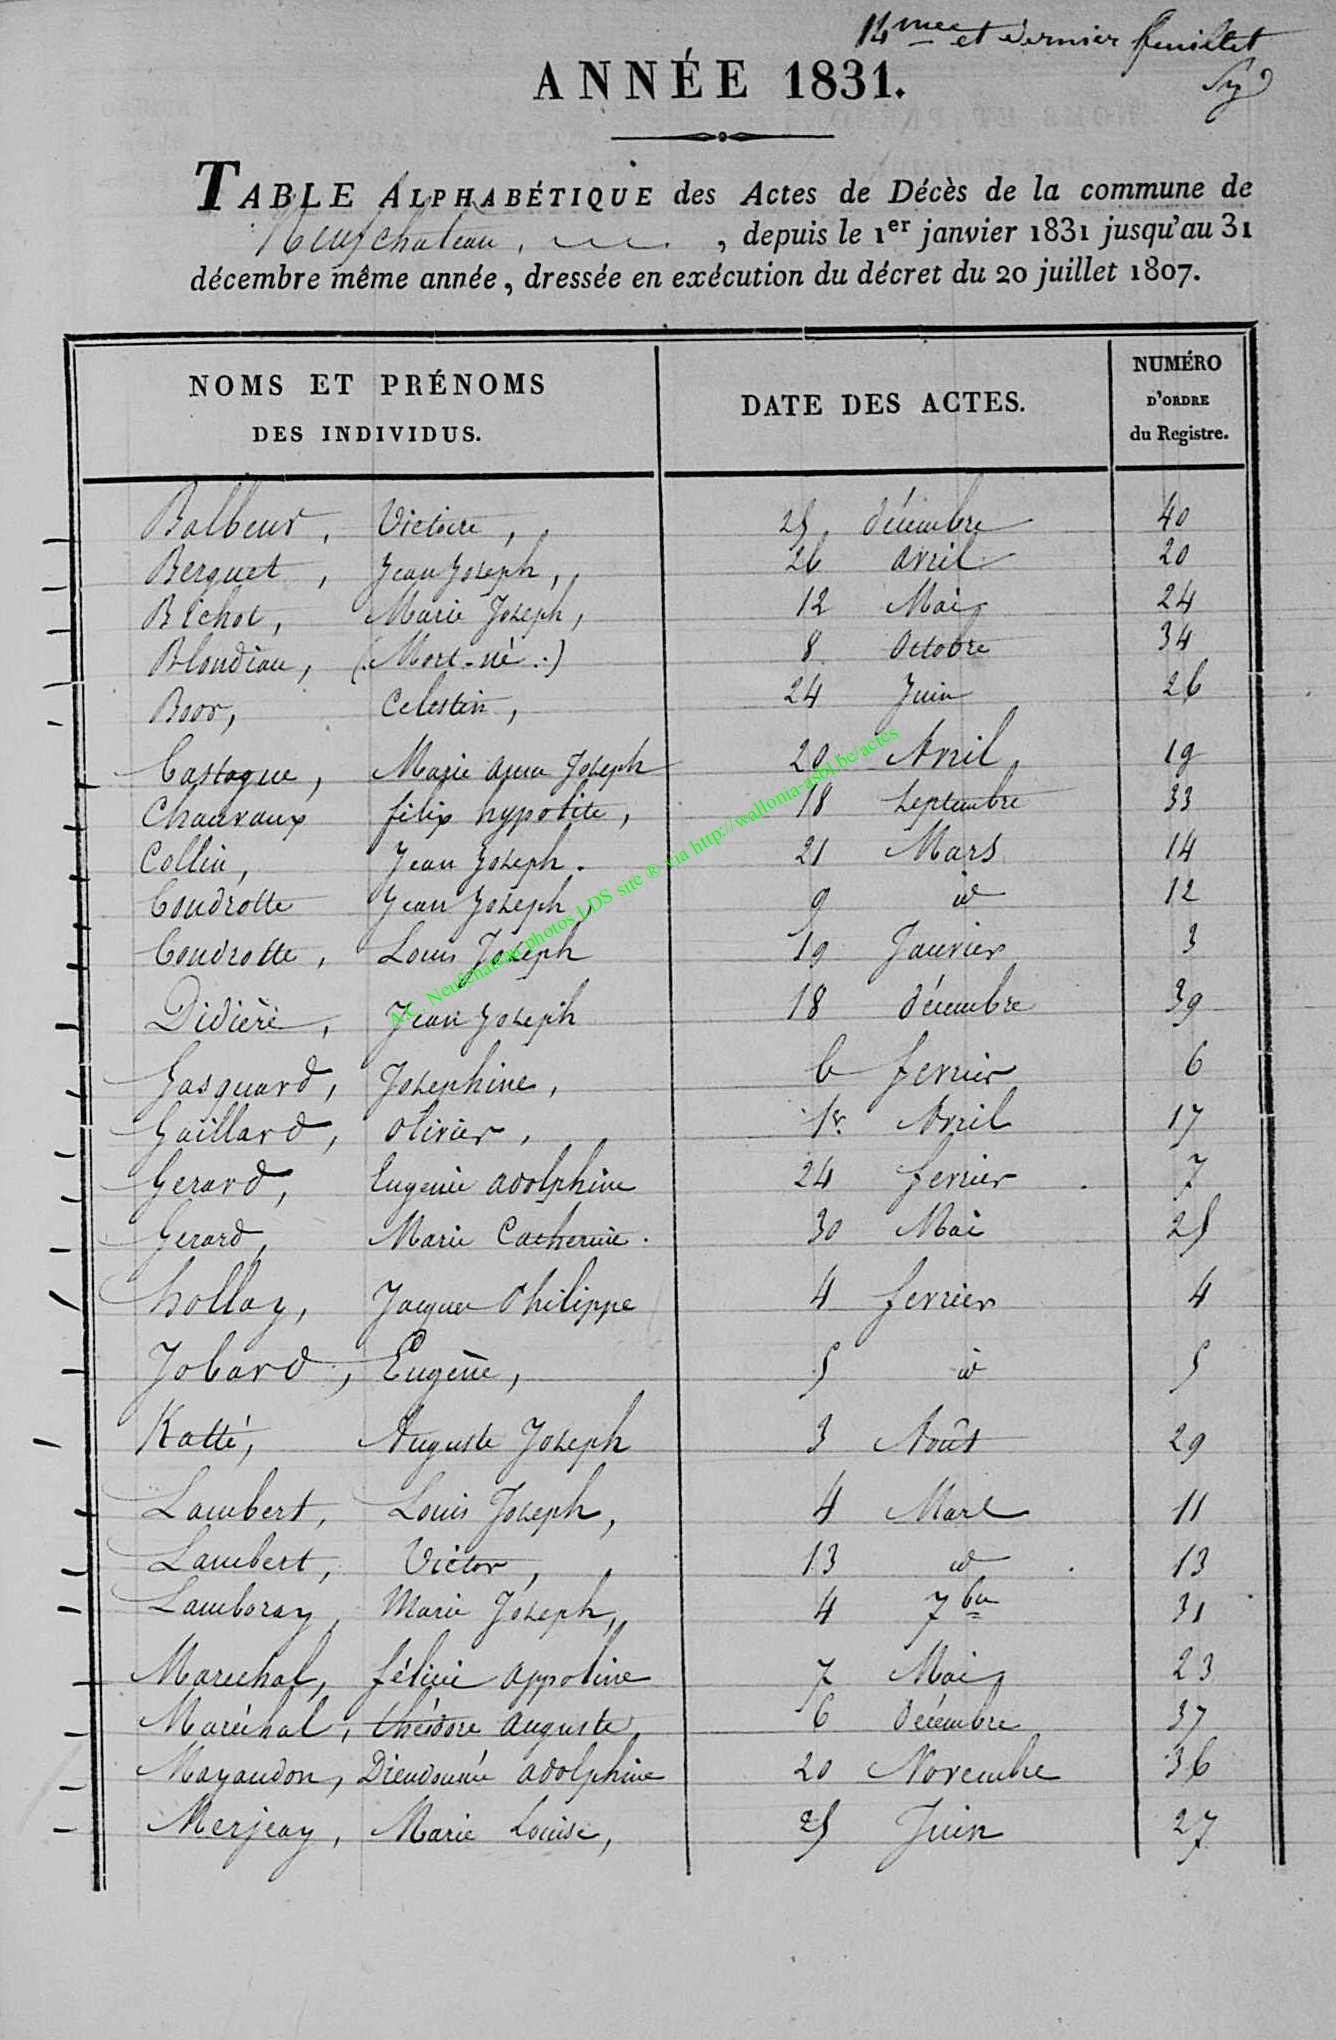 14me et dernier feuillet
ANNÉE 1831.
TABLE ALPHABÉTIQUE des Actes de Décès de la commune de
Neufchateau, depuis le 1er janvier 1831 jusqu'au 31
décembre même année, dressée en exécution du décret du 20 juillet 1807.
NOMS ET PRÉNOMS DES INDIVIDUS. DATE DES ACTES. NUMÉRO D'ORDRE du Registre.
Balbeur, Victoire, 25 décembre 40
Berquet, Jean Joseph, 26 avril 20
Bichot, Marie Joseph, 12 Mai 24
Blondiau, (Mort-né.) 8 Octobre 34
Boor, Celestin, 24 Juin 26
Castagne, Marie anne Joseph 20 Avril 19
Chauvaux félix hypolite, 18 septembre 33
Collin, Jean Joseph. 21 Mars 14
Coudrotte Jean Joseph, 9 id 12
Coudrotte, Louis Joseph 19 Janvier 3
Didière, Jean Joseph 18 décembre 39
Gasquard, Josephine, 6 fevrier 6
Gaillard, olivier, 1r. Avril 17
Gerard, Eugenie adolphine 24 fevrier 7
Gerard, Marie Catherine. 30 Mai 25
hollay, Jacques Philippe 4 fevrier 4
Jobard, Eugène, 5 id 5
Katté, Auguste Joseph 3 Août 29
Lambert, Louis Joseph, 4 Mars 11
Lambert, Victor, 13 id 13
Lamboray, Marie Joseph, 4 7bre 31
Marechal, félicie appoline 7 Mai 23
Maréchal, théodore auguste, 6 décembre 37
Mayaudon, Dieudonnée adolphine 20 Novembre 36
Merjeay, Marie Louise, 25 Juin 27
A.C. Neufchateau photos LDS site ® via http://wallonia-asbl.be/actes